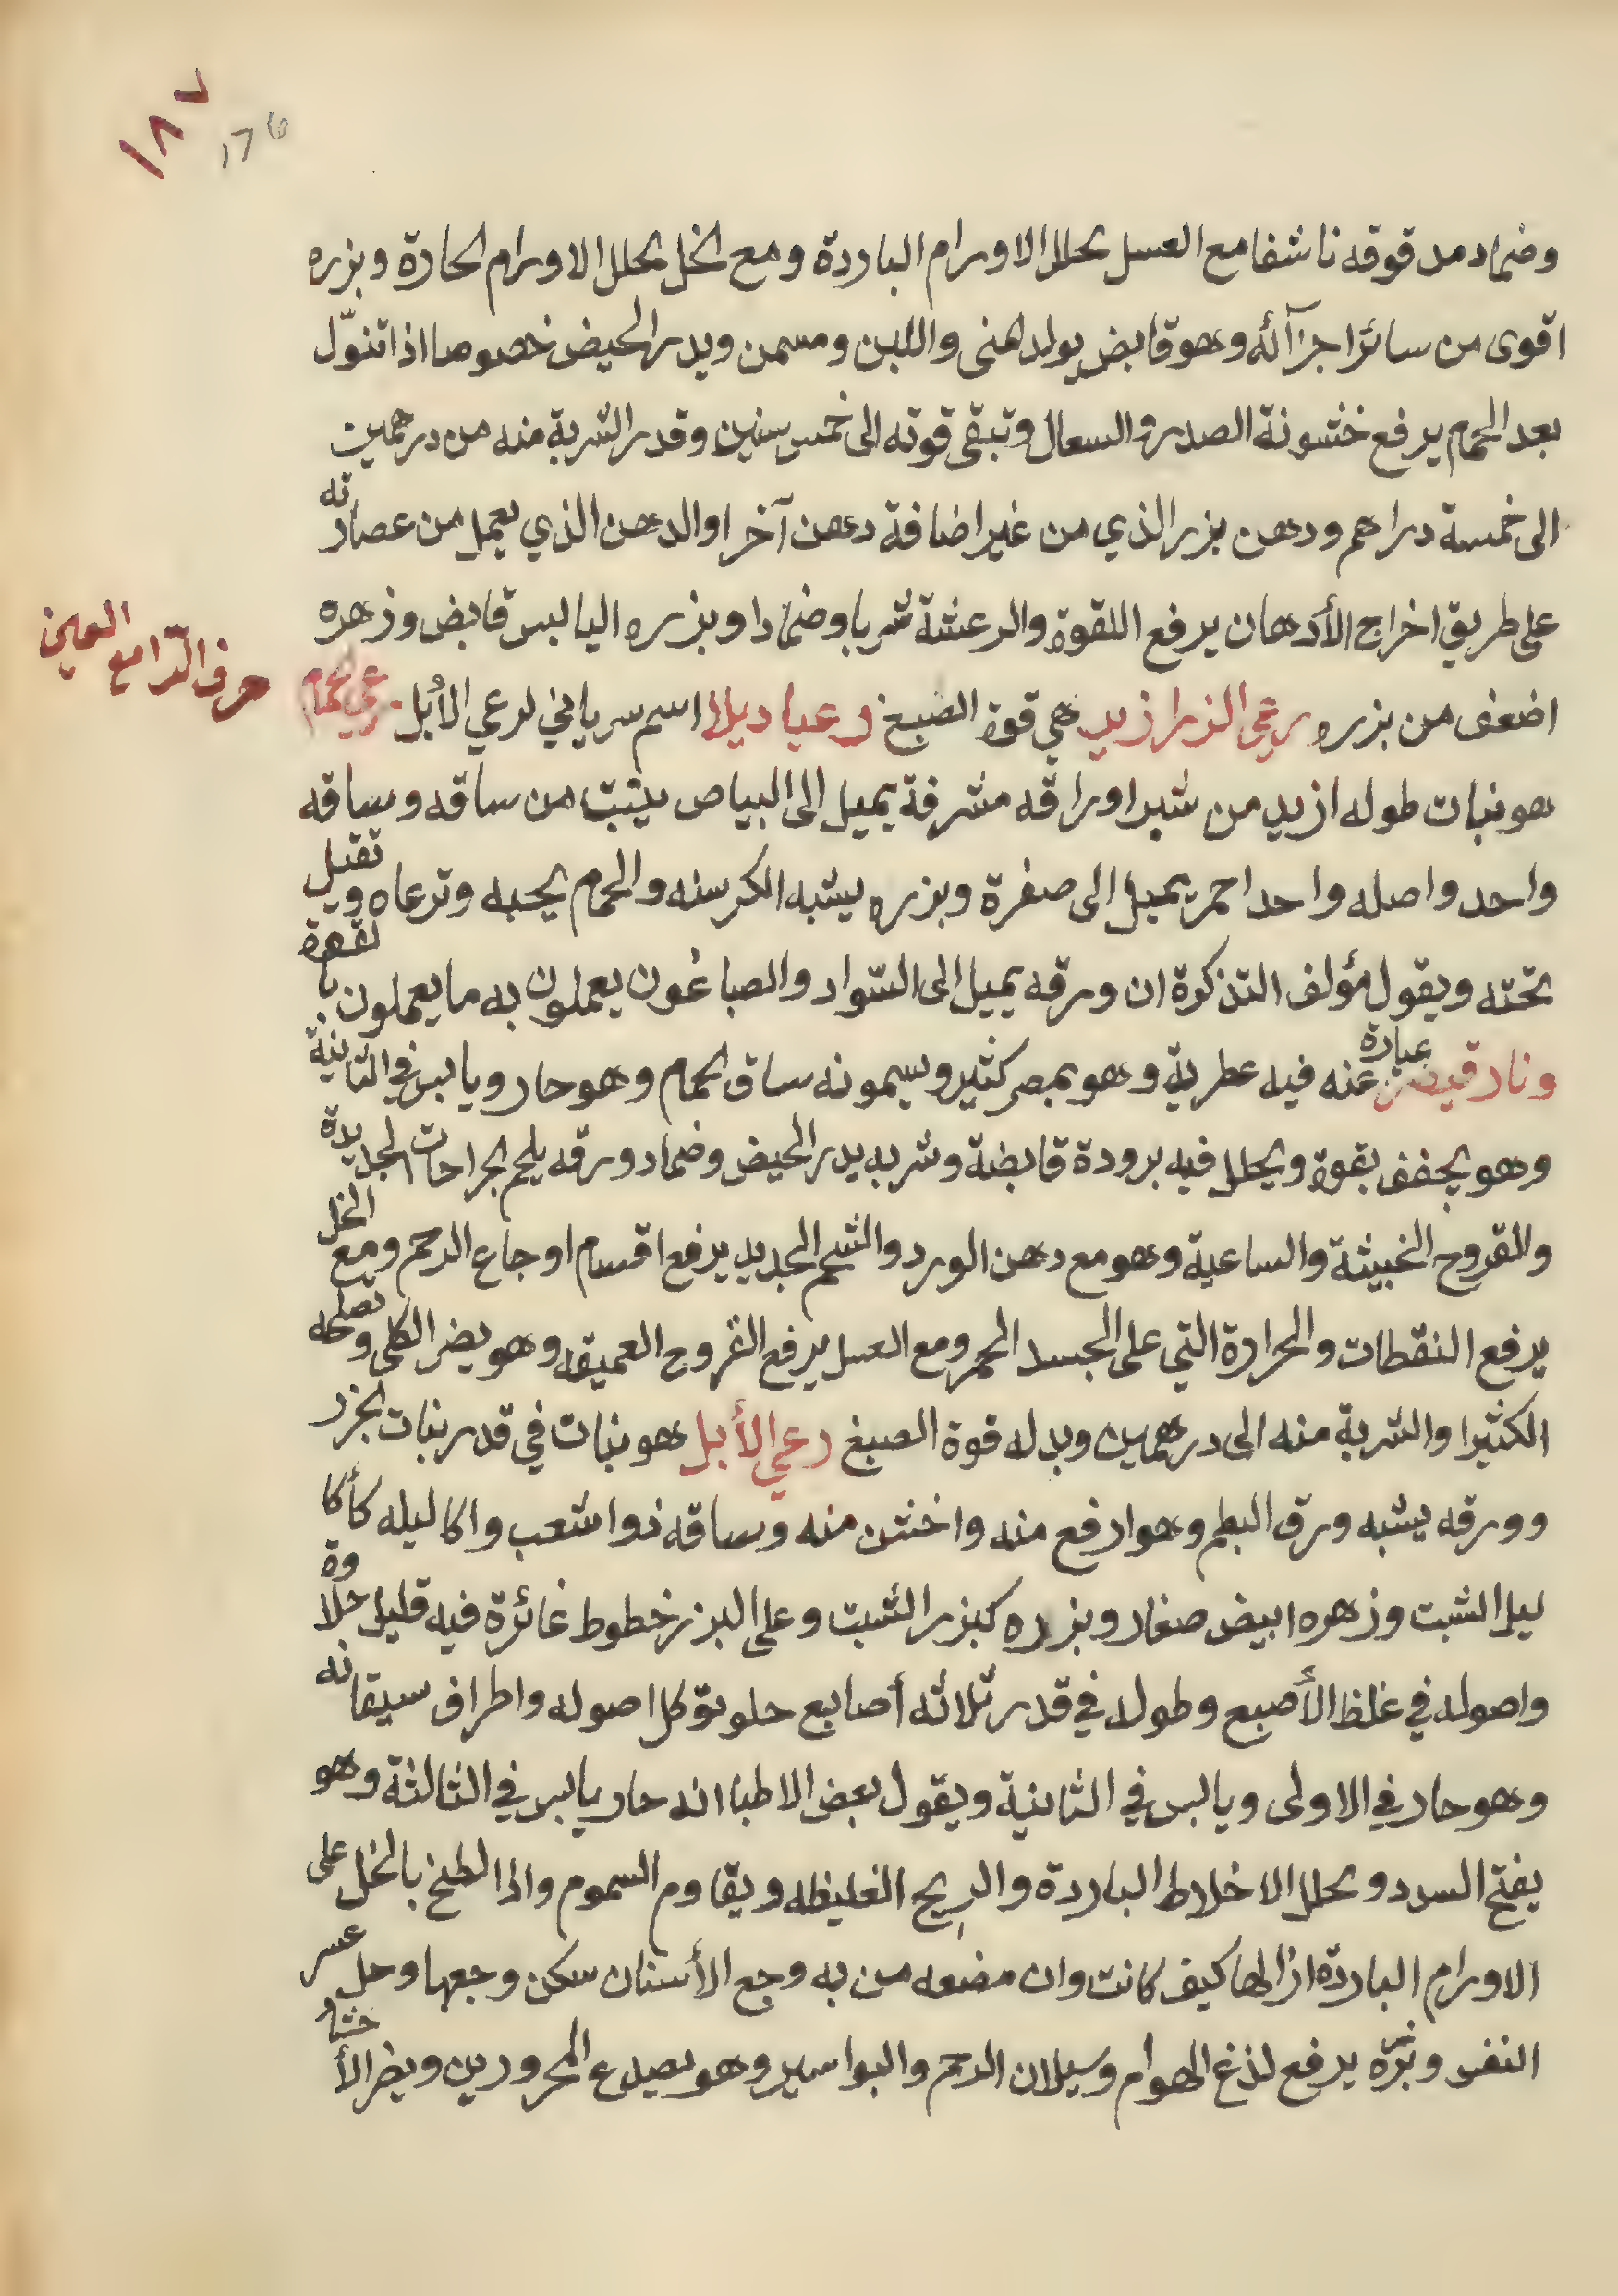 ١٨٧
176
وضماد مدقوقه ناشفا مع العسل يحلل الاورام الباردة ومع الخل يحلل الاورام الحارة وبزره
اقوى من سائر اجزآئه وهو قابض يولد المنى واللبن ومسمن ويدر الحيض خصوصا اذا تنوّل
بعد الحمام يرفع خشونة الصدر والسعال وتبقى قوته الى خمس سنين وقدر الشربة منه من درهمين
الى خمسة دراهم ودهن بزر الذي من غير اضافة دهن آخر او الدهن الذي يعمل من عصارته
على طريق اخراج الأدهان يرفع اللقوة والرعشة شربا وضمادا وبزره اليابس قابض وزهره
حرف الرّا مع العين
اضعف من بزره رعي الزرازير هي قوة الصبغ رعيا ديلا اسم سرياني لرعي الأبل رعي الحمام
هو نبات طوله ازيد من شبر اوراقه مشرفة يميل الى البياض ينبت من ساقه وساقه
واحد واصله واحد احمر يميل الى صفرة وبزره يشبه الكرسنه والحمام يحبه وترعاه ويقتل
تحته ويقول مؤلف التذكرة ان ورقه يميل الى السّواد والصباغون يعملون به ما يعملون بالقوة
ونارقيصر عبارة عنه فيه عطرية وهو بمصر كثير ويسمونه ساق الحمام وهو حار ويابس في الثانية
وهو يجفف بقوة ويحلل فيه برودة قابضة وشربه يدر الحيض وضماد ورقه يلحم الجراحات الجديدة
وللقروح الخبيثة والساعية وهو مع دهن الورد والشحم الجديد يرفع اقسام اوجاع الرحم ومع الخل
يرفع النقطات والحرارة التي على الجسد الحمر ومع العسل يرفع القروح العميقه وهو يضر الكلى وتصلحه
الكثيرا والشربة منه الى درهمين وبدله قوة الصبغ رعي الأبل هو نبات في قدر بنات الجزر
وورقه يشبه ورق البطم وهو ارفع منه واخشن منه وساقه ذو اشعب واكاليله كأكا
ليل الشبت وزهره ابيض صغار وبزره كبزر الشبت وعلى البزر خطوط غائرة فيه قليل حلاوة
واصوله في غلظ الأصبع وطوله في قدر ثلاثه أصابع حلو يؤكل اصوله واطراف سيقانه
وهو حار في الاولى ويابس في الثانية ويقول بعض الاطبا انه حار يابس في الثالثة وهو
يفتح السدد ويحلل الاخلاط الباردة والريح الغليظه ويقاوم السموم واذا لطخ بالخل على
الاورام الباردة ازالها كيف كانت وان مضغه من به وجع الأسنان سكن وجعها وحل عسر
النفس وبزّره يرفع لذغ الهوام وسيلان الرحم والبواسير وهو يصدع المحرورين ويضر الأحشا